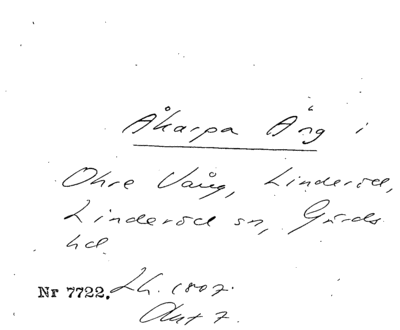 Åkarpa Äng i
Ohre Vång, Linderöd,
Linderöd sn, Gärds
hd
Nr 7722. Lh. 1807.
Akt 7.